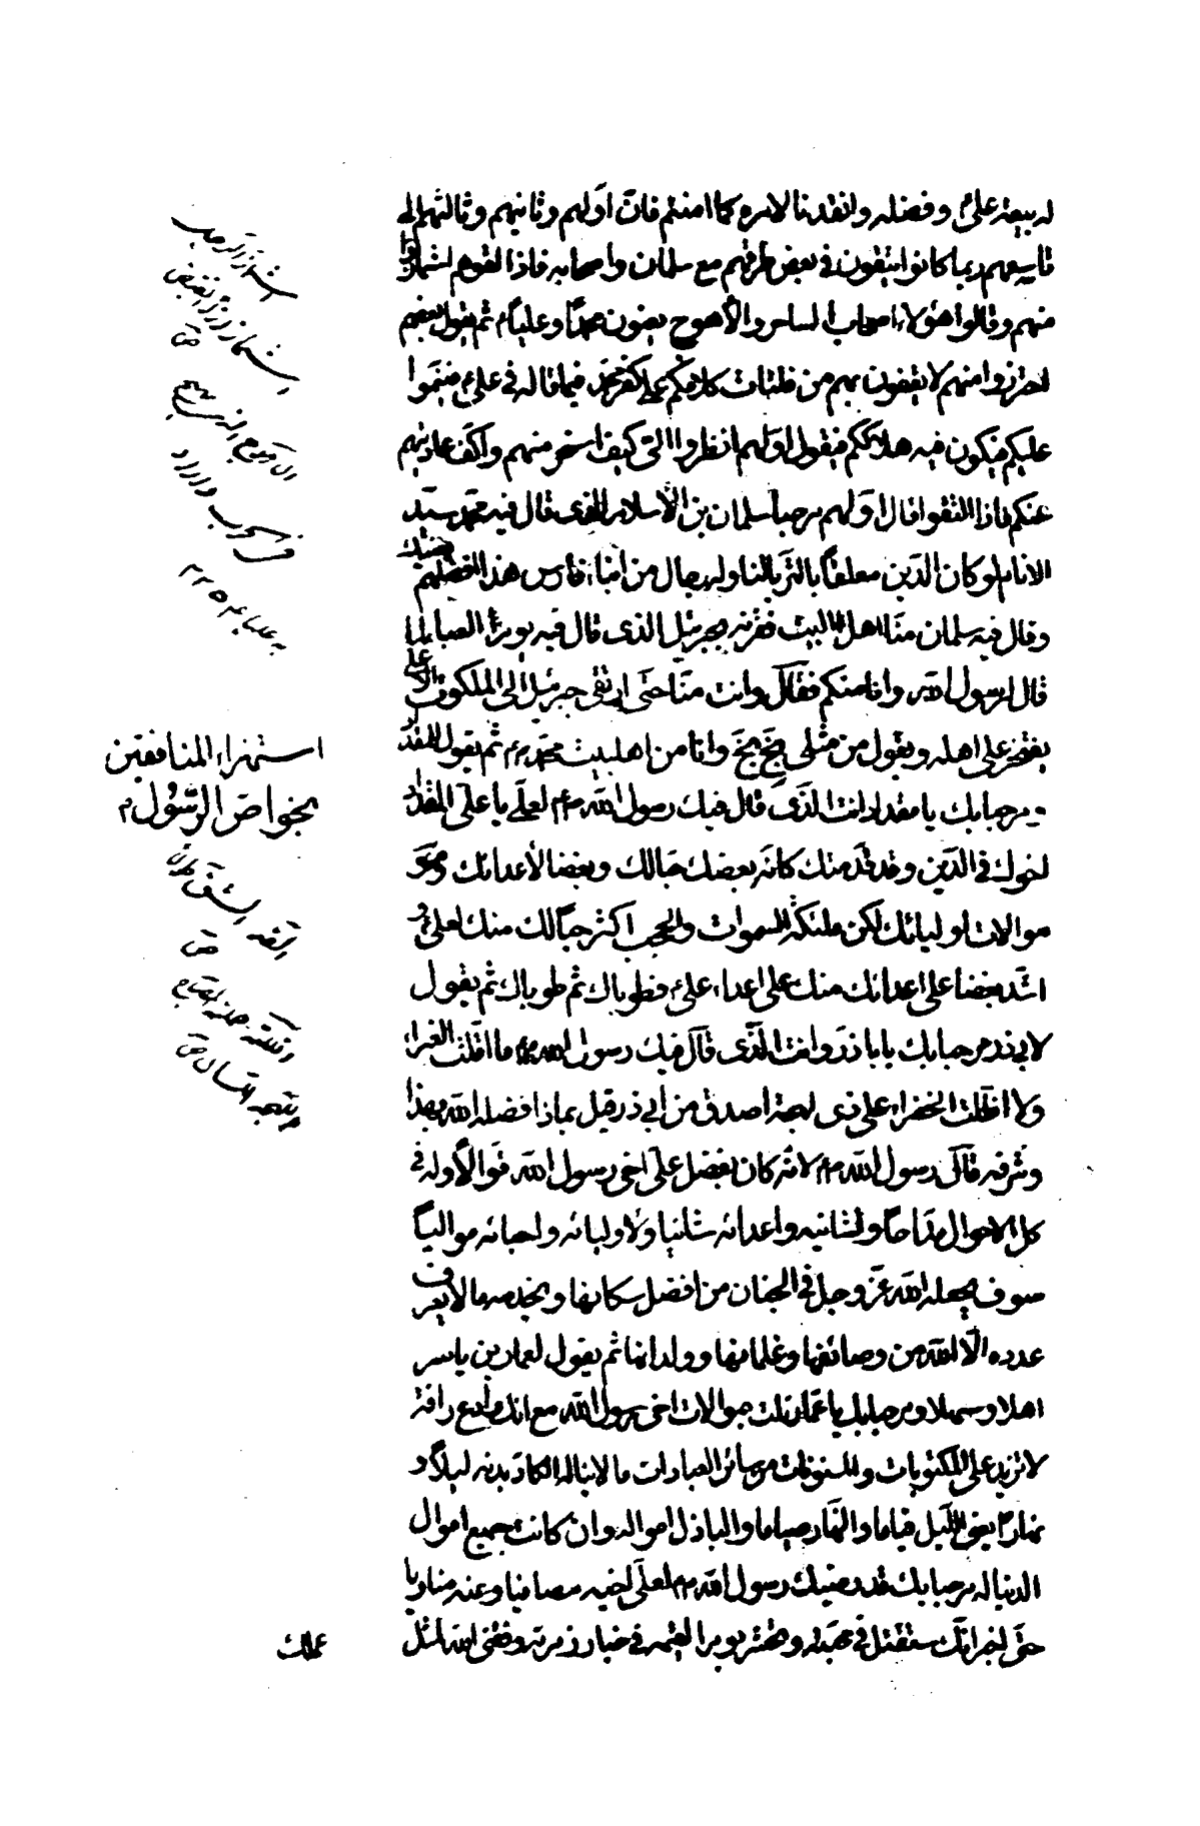 له بيعته علي ء وفضله وانقدنا لامره كما امنتم فان اولهم وثانيهم وثالثهم الى
تاسعهم ربما كانوا يلتقون في بعض طرقهم مع سلمان واصحابه فاذا لقوهم اشمازوا
منهم وقالوا هؤلاء اصحاب الساحر والأهوج يعنون محمدا وعليا ء ثم يقول بعضهم
احترزوا منهم لا يقفون بهم من فلتات كلامكم على كفر محمد فيما قاله في علي ء فينموا
عليكم فيكون فيه هلاككم فيقول اولهم انظروا الي كيف اسخر منهم واكف عاديتهم
عنكم فاذا التقوا قال اولهم مرحبا بسلمان بن الأسلام الذي قال فيه محمد سيد
الانام لو كان الدين معلقا بالثريا لتناوله رجال من ابناء فارس هذا افضلهم يعنيك
وقال فيه سلمان منا اهل البيت فقرنه بجبرئيل الذي قال فيه يوم العبا لما
قال لرسول الله وانا منكم فقال وانت منا حتى ارتقى جبرئيل الى الملكوت الاعلى
يفتخر على اهله ويقول من مثلي بخ بخ وانا من اهل بيت محمد ص ثم يقول للمقداد
ومرحبا بك يا مقداد انت الذي قال فيك رسول الله ص لعلي يا علي المقداد
اخوك في الدين وقد قد منك كانه بعضك حبا لك وبغضا لأعدائك و
موالات لاوليائك لكن ملئكة السموات والحجب اكثر حبا لك منك لعلي ء و
اشد بغضا على اعدائك منك على اعداء علي ء فطوباك ثم طوباك ثم يقول
لابي ذر مرحبا بك يا با ذر وانت الذي قال فيك رسول الله ص ما اقلت الغبراء
ولا اظلت الخضراء على ذي لهجة اصدق من ابي ذر قيل بماذا فضله الله بهذا
وشرفه قال رسول الله ص لانه كان بفضل علي اخي رسول الله قوالا وله في
كل الاحوال مداحا ولشانيه واعدائه شانيا ولاوليائه واحبائه مواليا
سوف يجعله الله عز وجل في الجنان من افضل سكانها ويخدمه ما لا يعرف
عدده الا الله من وصائفها وغلمانها وولدانها ثم يقول لعمار بن ياسر
اهلا وسهلا ومرحبا بك يا عمار نلت بموالات اخي رسول الله مع انك وادع رافه
لا تزيد على المكتوبات والمسنونات من سائر العبادات ما لا يناله الكاد بدنه ليلا و
نهارا يعني الليل قياما والنهار صياما والباذل امواله وان كانت جميع اموال
الدنيا له مرحبا بك قد رضيك رسول الله ص لعلي اخيه مصافيا وعنه مناويا
حتى اخبر انك ستقتل في محبته وتحشر يوم القيمة في خيار زمرته وفقني الله لمثل
عملك
استهزاء المنافقين
بخواص الرسول ص